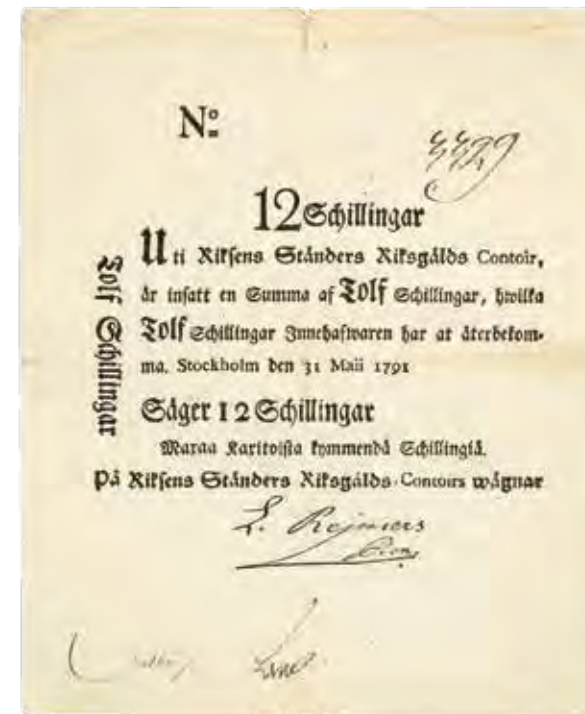 No:
12 Schillingar
Uti Riksens Ständers Riksgälds Contoir,
är insatt en Summa af Tolf Schillingar, hwilka
Tolf Schillingar Innehafwaren har at återbekom-
ma. Stockholm den 31 Maii 1791
Säger 12 Schillingar
Maxaa Karitoista kymmendä Schillingiä.
På Riksens Ständers Riksgälds-Contoirs wägnar
Tolf Schillingar